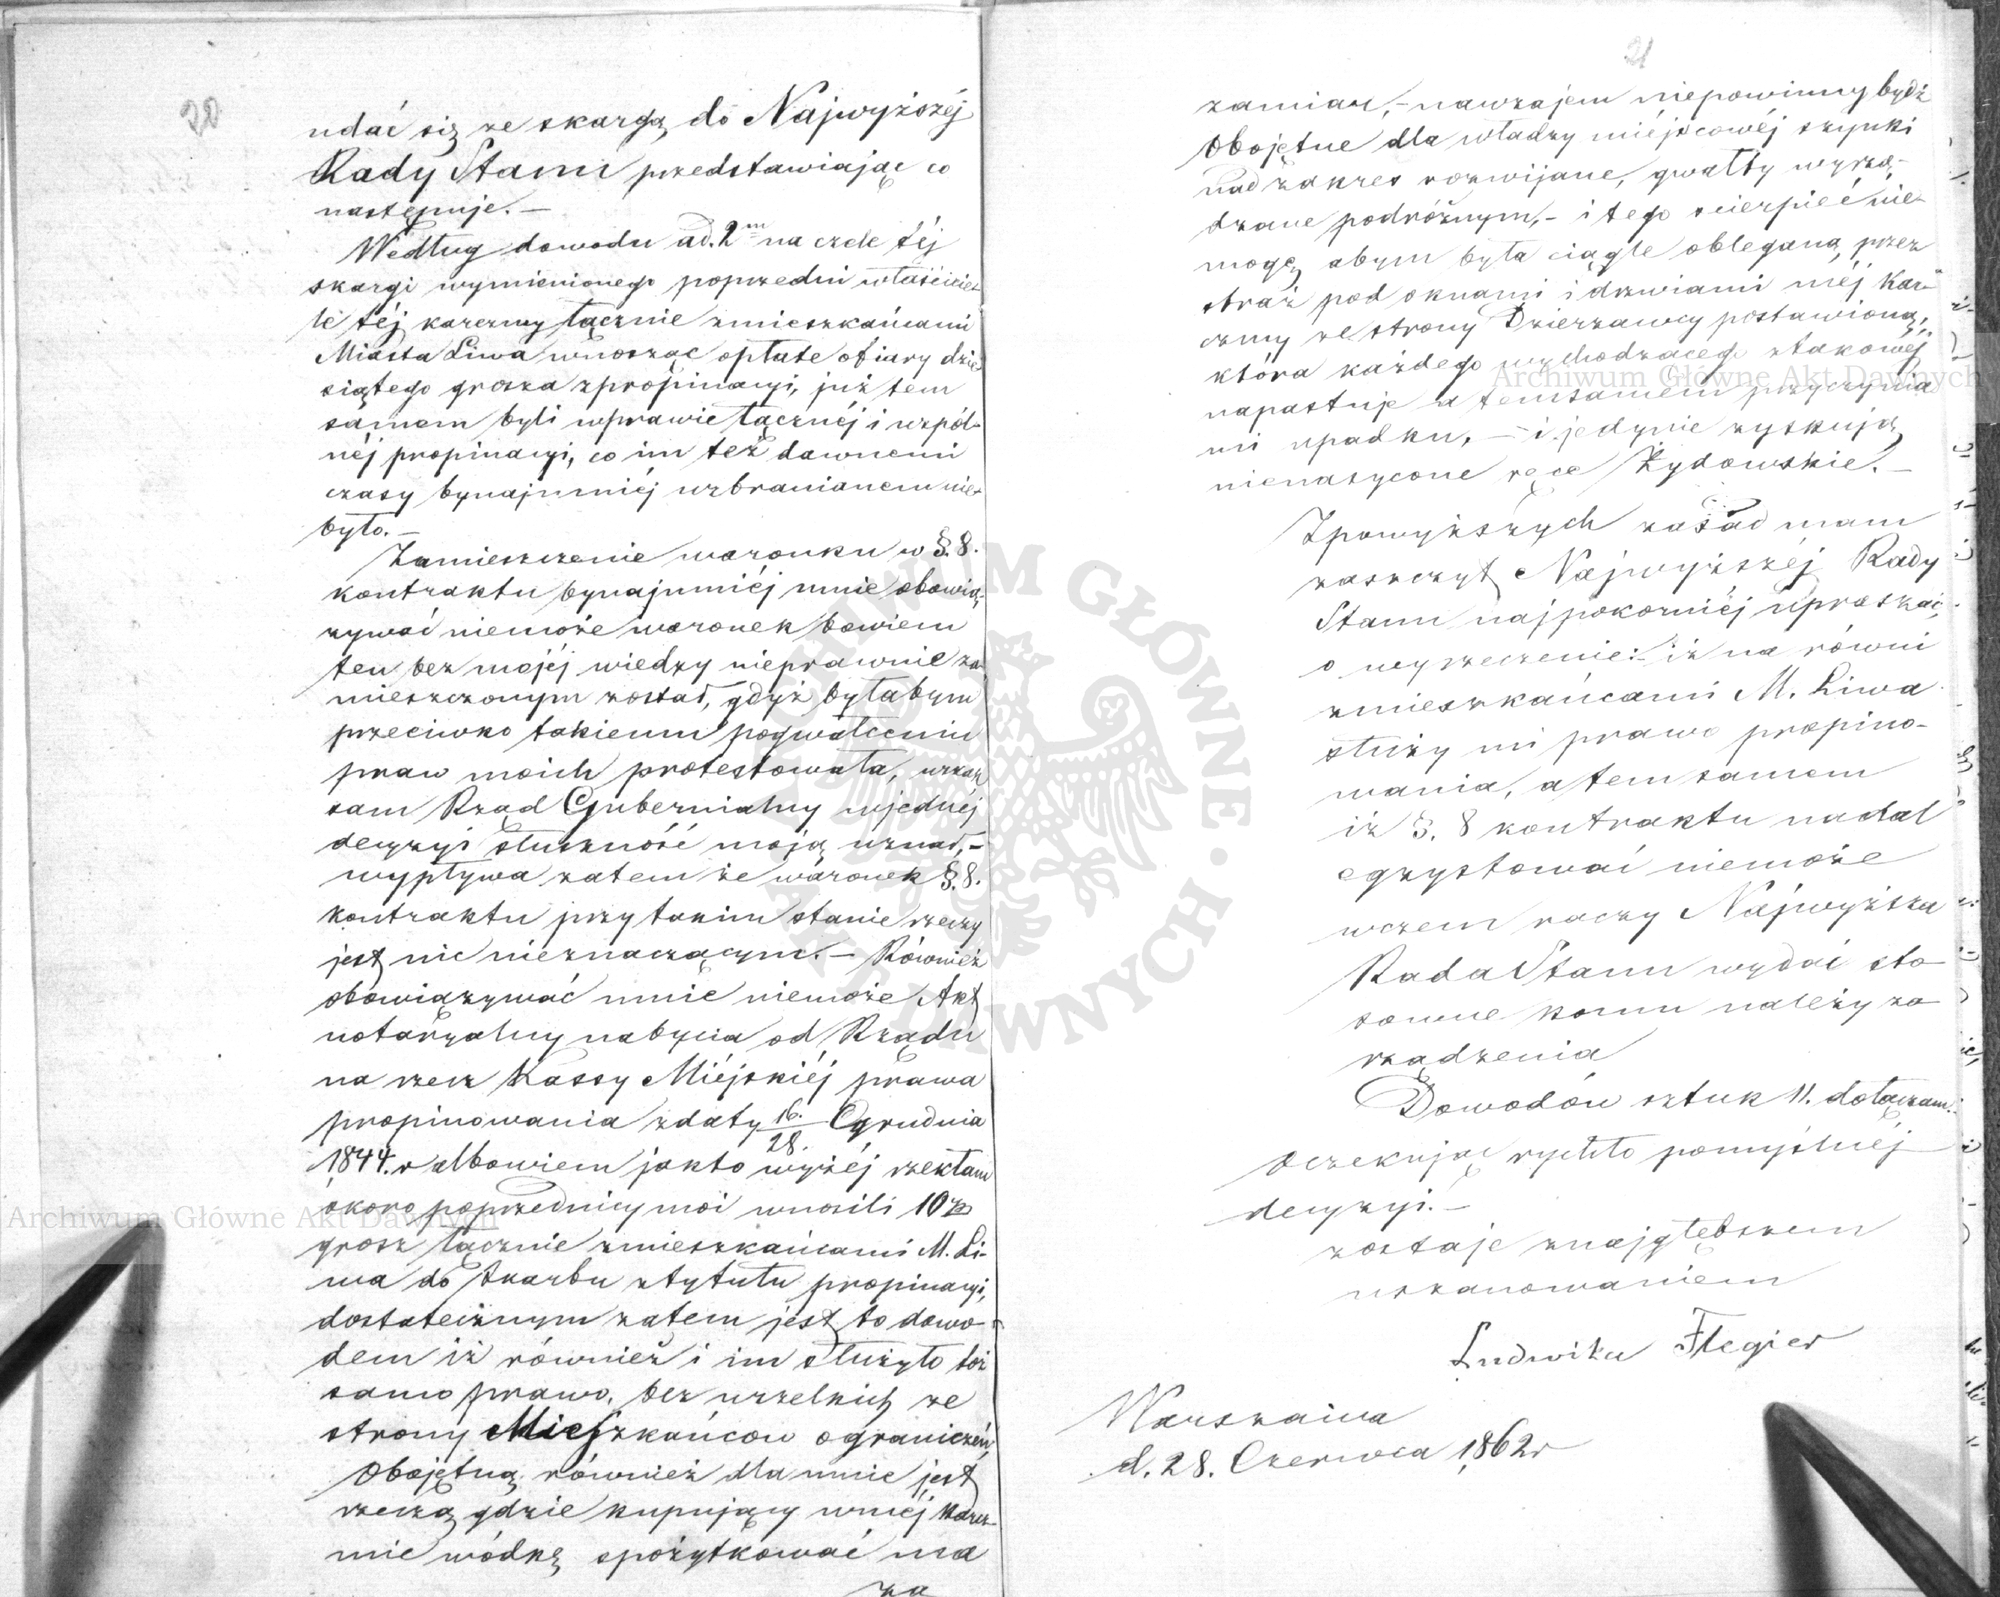 20
udać się ze skargą do Najwyższéj
Rady Stanu przedstawiając co
następuje. —
Według dowodu ad. 2m na czele téj
skargi wymienionego poprzedni właścicie-
le téj karczmy łącznie zmieszkańcami
Miasta Liwa wnosząc opłatę ofiary dzie-
siątego grosza zpropinacyi, już tem
samem byli wprawie łącznéj i wspól-
néj propinacyi, co im też dawnemi
czasy bynajmniéj wzbranianem nie
było. —
Zamieszczenie warunku w §. 8.
kontraktu bynajmniéj mnie obowią-
zywać niemoże warunek bowiem
ten bez mojéj wiedzy nieprawnie za-
mieszczonym został, gdyż byłabym
przeciwko takiemu pogwałceniu
praw moich protestowała, wszak
sam Rząd Gubernialny wjednéj
decyzyi słuszność moją uznał, —
wypływa zatem że warunek §. 8.
kontraktu przy takim stanie rzeczy
jest nic nieznaczącym. — Również
obowiązywać mnie niemoże Akt
notaryalny nabycia od Rządu
na rzecz Kassy Miéjskiéj prawa
propinowania zdaty 16./28. Grudnia
1844. r albowiem jakto wyżéj rzekłam
skoro poprzednicy moi wnosili 10ty
grosz łącznie zmieszkańcami M. Li-
wa do skarbu ztytułu propinacyi,
dostatecznym zatem jest to dowo-
dem iż również i im służyło toż
samo prawo, bez wszelkich ze
strony Mieszkańcow ograniczeń,
Obojętną również dla mnie jest
rzeczą gdzie kupujący wméj karcz-
mie wódkę spożytkować ma
za
21
zamiar, — nawzajem niepowinny bydź
obojętne dla władzy miéjscowéj szynki
nad zakres rozwijane, gwałty wyrzą-
dzane podróżnym, — i tego scierpieć nie
mogę abym była ciągle oblegana przez
straż pod oknami i drzwiami méj Kar-
czmy ze strony Dzierzawcy postawioną,
która każdego wychodzącego ztakowéj
napastuje a temsamem przyczynia
mi upadku, — i jedynie zyskują
nienasycone ręce Żydowskie. —
Zpowyższych zasad mam
zaszczyt Najwyższéj Rady
Stanu najpokorniéj upraszać
o wyrzeczenie: iż na równi
zmieszkańcami M. Liwa
służy mi prawo propino-
wania, a tem samem
iż §. 8 kontraktu nadal
egzystować niemoże
wczem raczy Najwyższa
Rada Stanu wydać sto-
sowne komu należy za-
rządzenia
Dowodów sztuk 11. dołączam.
Oczekując rychło pomyślnéj
decyzyi. —
zostaje znajgłębszem
uszanowaniem
Ludwika Flegier
Warszawa
d. 28. Czerwca 1862r
Archiwum Główne Akt Dawnych
Archiwum Główne Akt Dawnych
ARCHIWUM GŁÓWNE · AKT DAWNYCH ·